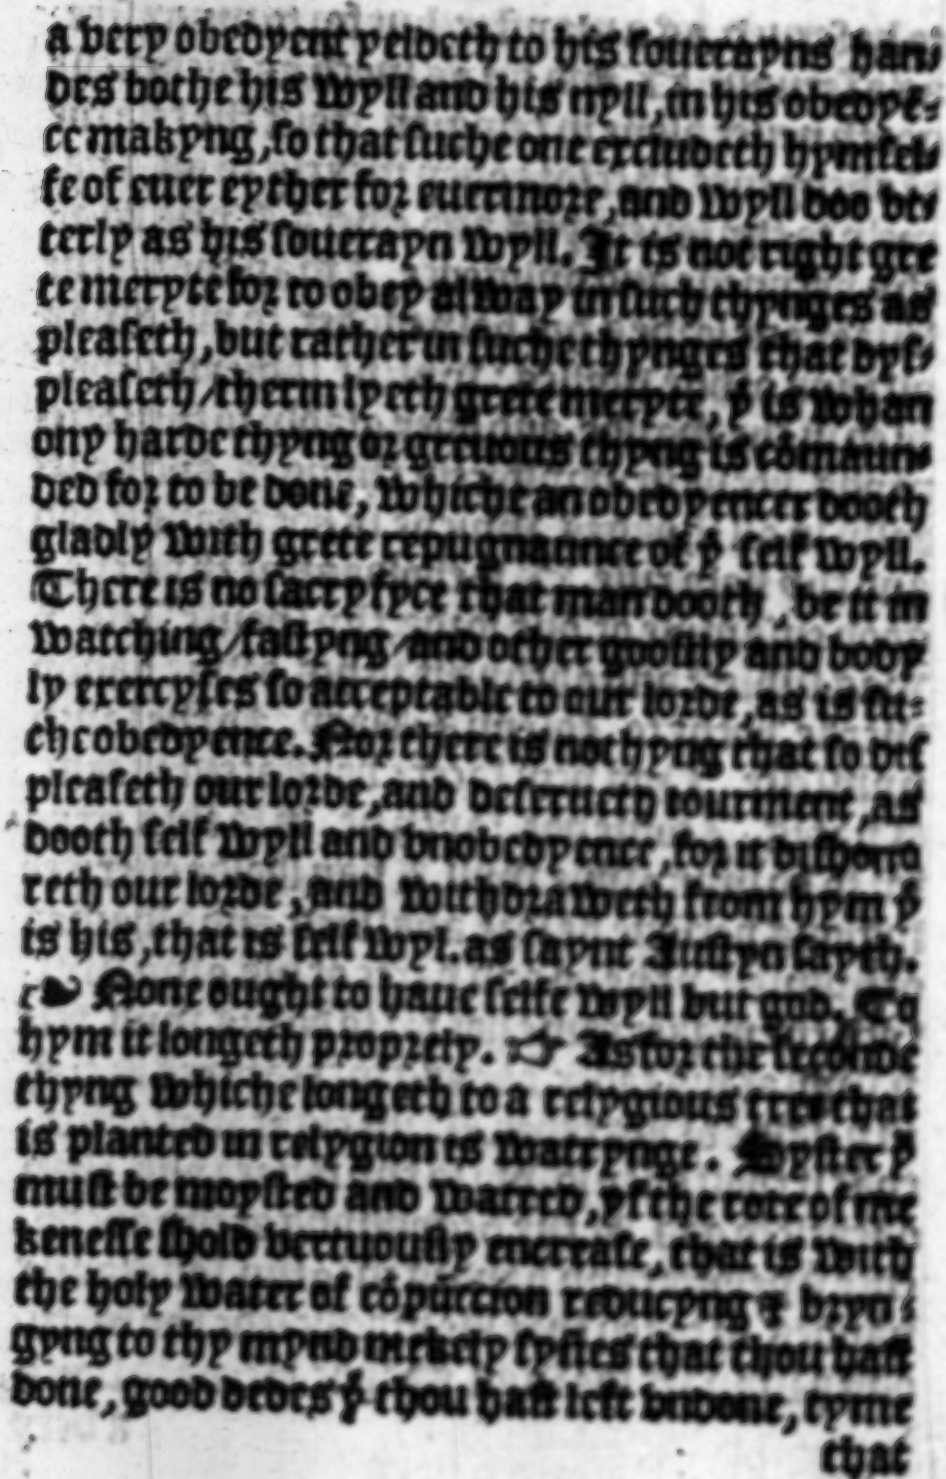 a very obedyent yeldeth to his souerayns han⸗
des bothe his wyll and his nyll, in his obedyē⸗
ce makyng, so that suche one excludeth hymsel⸗
fe of euer eyther for euermore, and wyll doo vt⸗
terly as his souerayn wyll. It is not right gre
te meryte for to obey alway in such thynges as
pleaseth, but rather in suche thynges that dys⸗
pleaseth / therin lyeth grete meryte, yͭ is whan
ony harde thyng or greuous thyng is cōmaun⸗
ded for to be done, whiche an obedyencer dooth
gladly with grete repugnaunce of yͤ self wyll.
There is no sacryfyce that man dooth, be it in
watching / fastyng / and other goostly and body
ly exercyses so acceptable to our lorde, as is su⸗
che obedyence. Nor there is nothyng that so dis
pleaseth our lorde, and deserueth tourment, as
dooth self wyll and vnobedyence, for it dishono
reth our lorde, and withdraweth from hym yͭ
is his, that is self wyl. as saynt Austyn sayth.
❧ None ought to haue selfe wyll but god. To
hym it longeth proprely. ☞ As for the seconde
thyng whiche longeth to a relygious tree that
is planted in relygion is watrynge. Syster yͭ
must be moysted and watred, yf the rote of me
kenesse shold vertuously encrease, that is with
the holy water of cōpūccion reducyng & bryn⸗
gyng to thy mynd mekely synnes that thou hast
done, good dedes yͭ thou hast left vndone, tyme
that